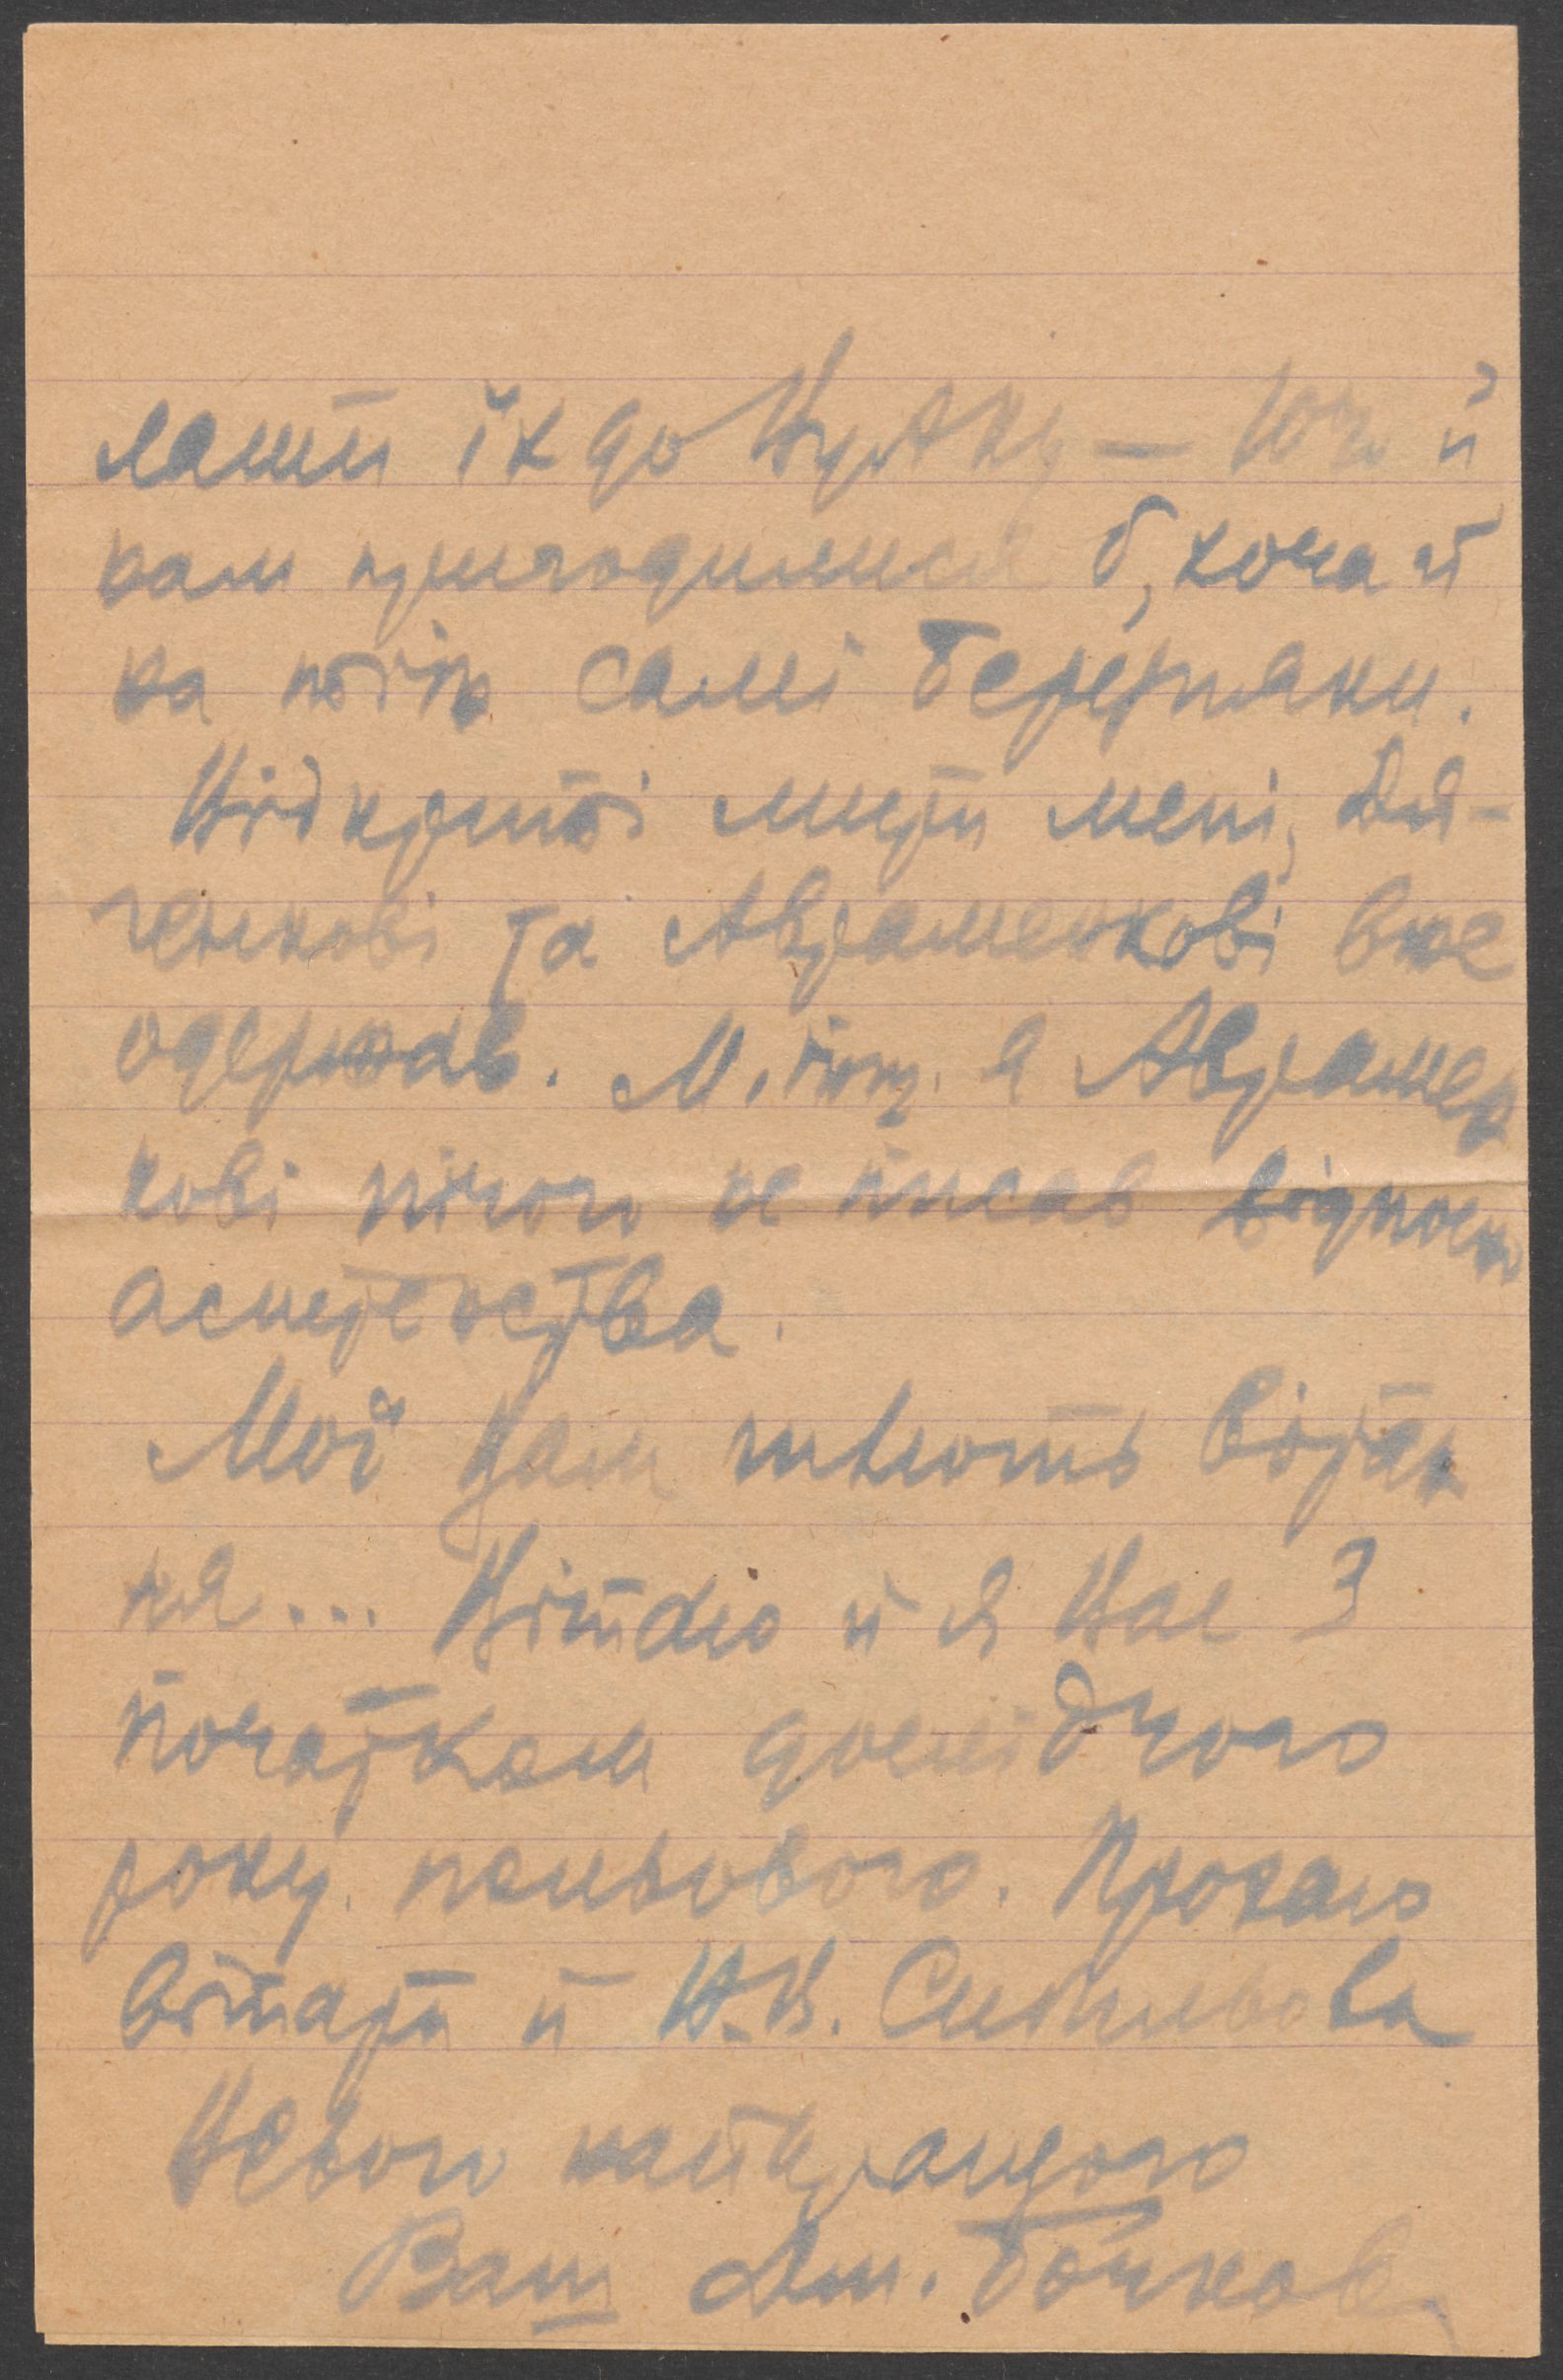 лати їх до Вузтку — Його й
нам пригодилися б, хоча й
на тоїх самі Бережняки.
Відкриті листи мені, Дя-
ченкові та Авраменкові вже
одержав. М. інш. я Аврамен
кові нічого не писав відносн
асистенства.
Мої Вам шлють вітан
ня... Вітаю й я Вас з
початком дослідчого
року польового. Прохаю
вітати й В.В.
Всього найкращого
Ваш Дм. Бочков